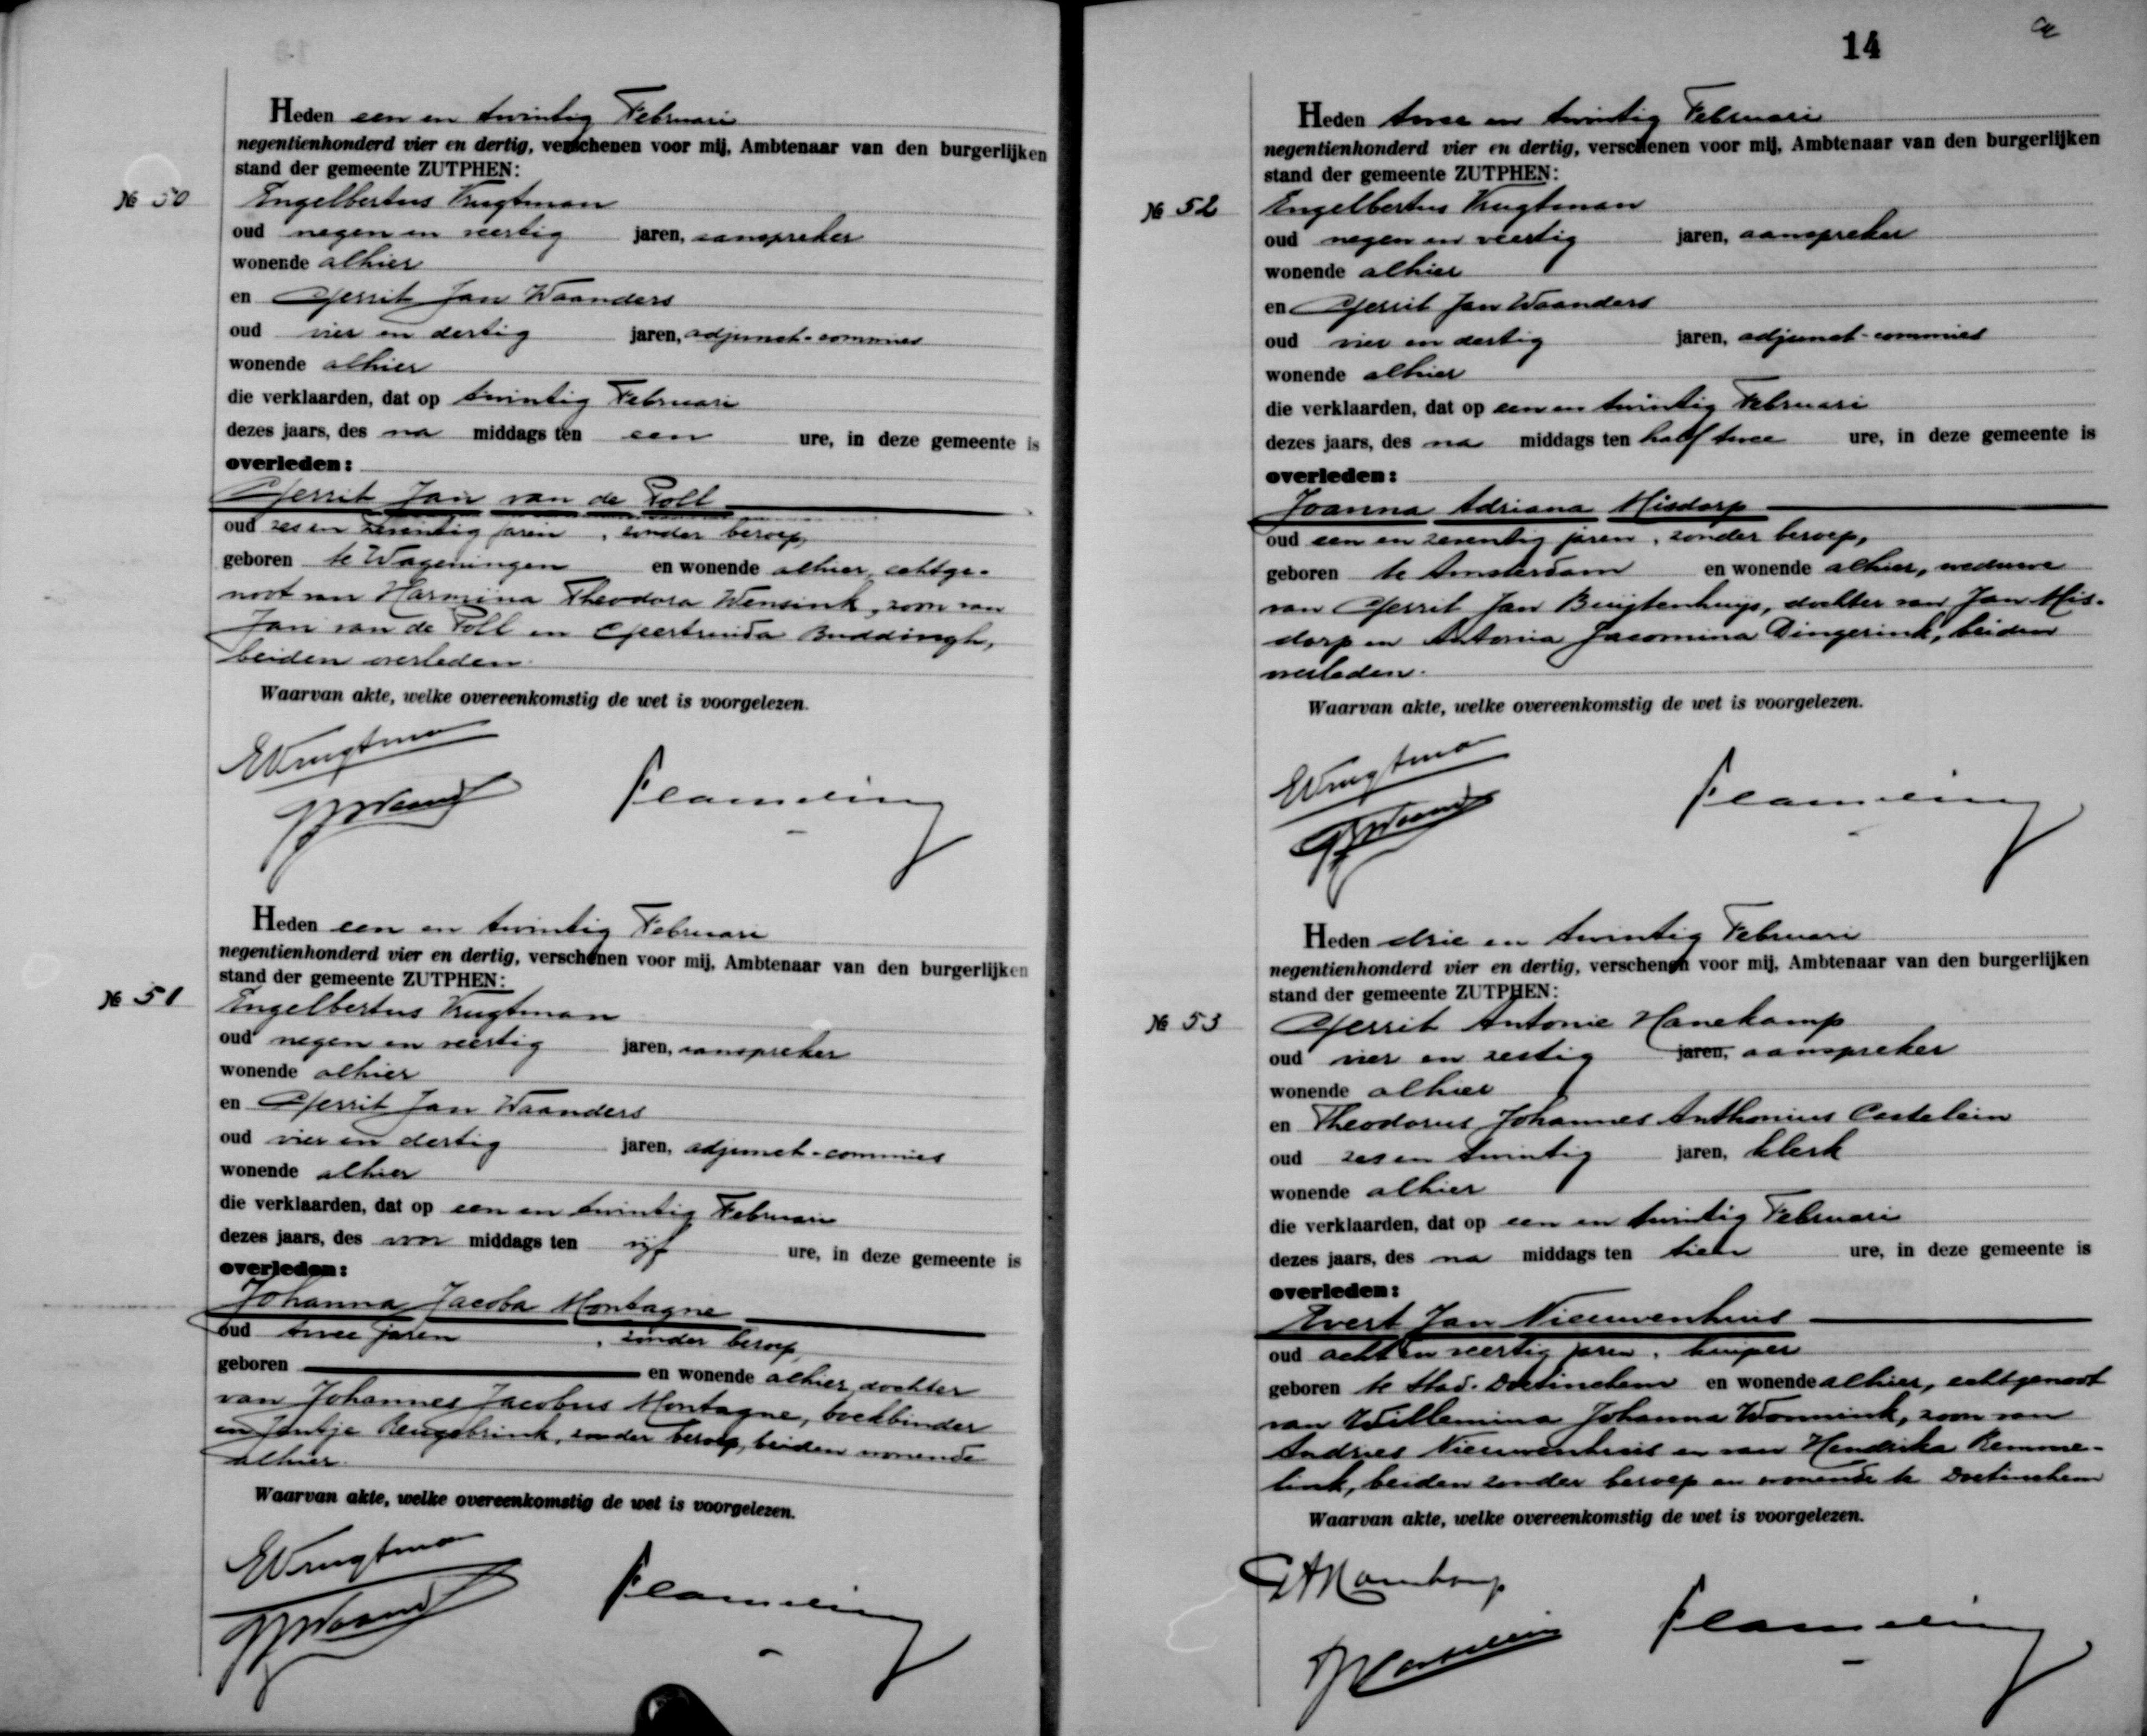 Heden een en twintig Februari
negentienhonderd vier en dertig, verschenen voor mij, Ambtenaar van den burgerlijken
stand der gemeente ZUTPHEN:
№ 50 Engelbertus Vrugtman
oud negen en veertig jaren, aanspreker
wonende alhier
en Gerrit Jan Waanders
oud vier en dertig jaren, adjunct-commies
wonende alhier
die verklaarden, dat op twintig Februari
dezes jaars, des na middags ten een ure, in deze gemeente is
overleden:
Gerrit Jan van de Poll
oud zes en zeventig jaren, zonder beroep,
geboren te Wageningen en wonende alhier, echtge-
noot van Harmina Theodora Wensink, zoon van
Jan van de Poll en Geertruida Buddingh,
beiden overleden.
Waarvan akte, welke overeenkomstig de wet is voorgelezen.
EVrugtman
GJWaand
Flameling
Heden een en twintig Februari
negentienhonderd vier en dertig, verschenen voor mij, Ambtenaar van den burgerlijken
stand der gemeente ZUTPHEN:
№ 51 Engelbertus Vrugtman
oud negen en veertig jaren, aanspreker
wonende alhier
en Gerrit Jan Waanders
oud vier en dertig jaren, adjunct-commies
wonende alhier
die verklaarden, dat op een en twintig Februari
dezes jaars, des voor middags ten vijf ure, in deze gemeente is
overleden:
Johanna Jacoba Montagne
oud twee jaren, zonder beroep,
geboren en wonende alhier, dochter
van Johannes Jacobus Montagne, boekbinder
en Jantje Beugsbrink, zonder beroep, beiden wonende
alhier.
Waarvan akte, welke overeenkomstig de wet is voorgelezen.
EVrugtman
GJWaand
Flameling
14
Heden twee en twintig Februari
negentienhonderd vier en dertig, verschenen voor mij, Ambtenaar van den burgerlijken
stand der gemeente ZUTPHEN:
№ 52 Engelbertus Vrugtman
oud negen en veertig jaren, aanspreker
wonende alhier
en Gerrit Jan Waanders
oud vier en dertig jaren, adjunct-commies
wonende alhier
die verklaarden, dat op een en twintig Februari
dezes jaars, des na middags ten half twee ure, in deze gemeente is
overleden:
Joanna Adriana Misdorp
oud een en zeventig jaren, zonder beroep,
geboren te Amsterdam en wonende alhier, weduwe
van Gerrit Jan Buijtenhuijs, dochter van Jan Mis-
dorp en Antonia Jacomina Dingerink, beiden
overleden.
Waarvan akte, welke overeenkomstig de wet is voorgelezen.
EVrugtman
GJWaand
Flameling
Heden drie en twintig Februari
negentienhonderd vier en dertig, verschenen voor mij, Ambtenaar van den burgerlijken
stand der gemeente ZUTPHEN:
№ 53 Gerrit Antonie Hanekamp
oud vier en zestig jaren, aanspreker
wonende alhier
en Theodorus Johannes Anthonius Castelein
oud zes en twintig jaren, klerk
wonende alhier
die verklaarden, dat op een en twintig Februari
dezes jaars, des na middags ten tien ure, in deze gemeente is
overleden:
Evert Jan Nieuwenhuis
oud acht en veertig jaren, kuiper
geboren te Stad-Doetinchem en wonende alhier, echtgenoot
van Willemina Johanna Wonnink, zoon van
Andries Nieuwenhuis en van Hendrika Remme-
link, beiden zonder beroep en wonende te Doetinchem
Waarvan akte, welke overeenkomstig de wet is voorgelezen.
GAHanekamp
Castelein
Flameling